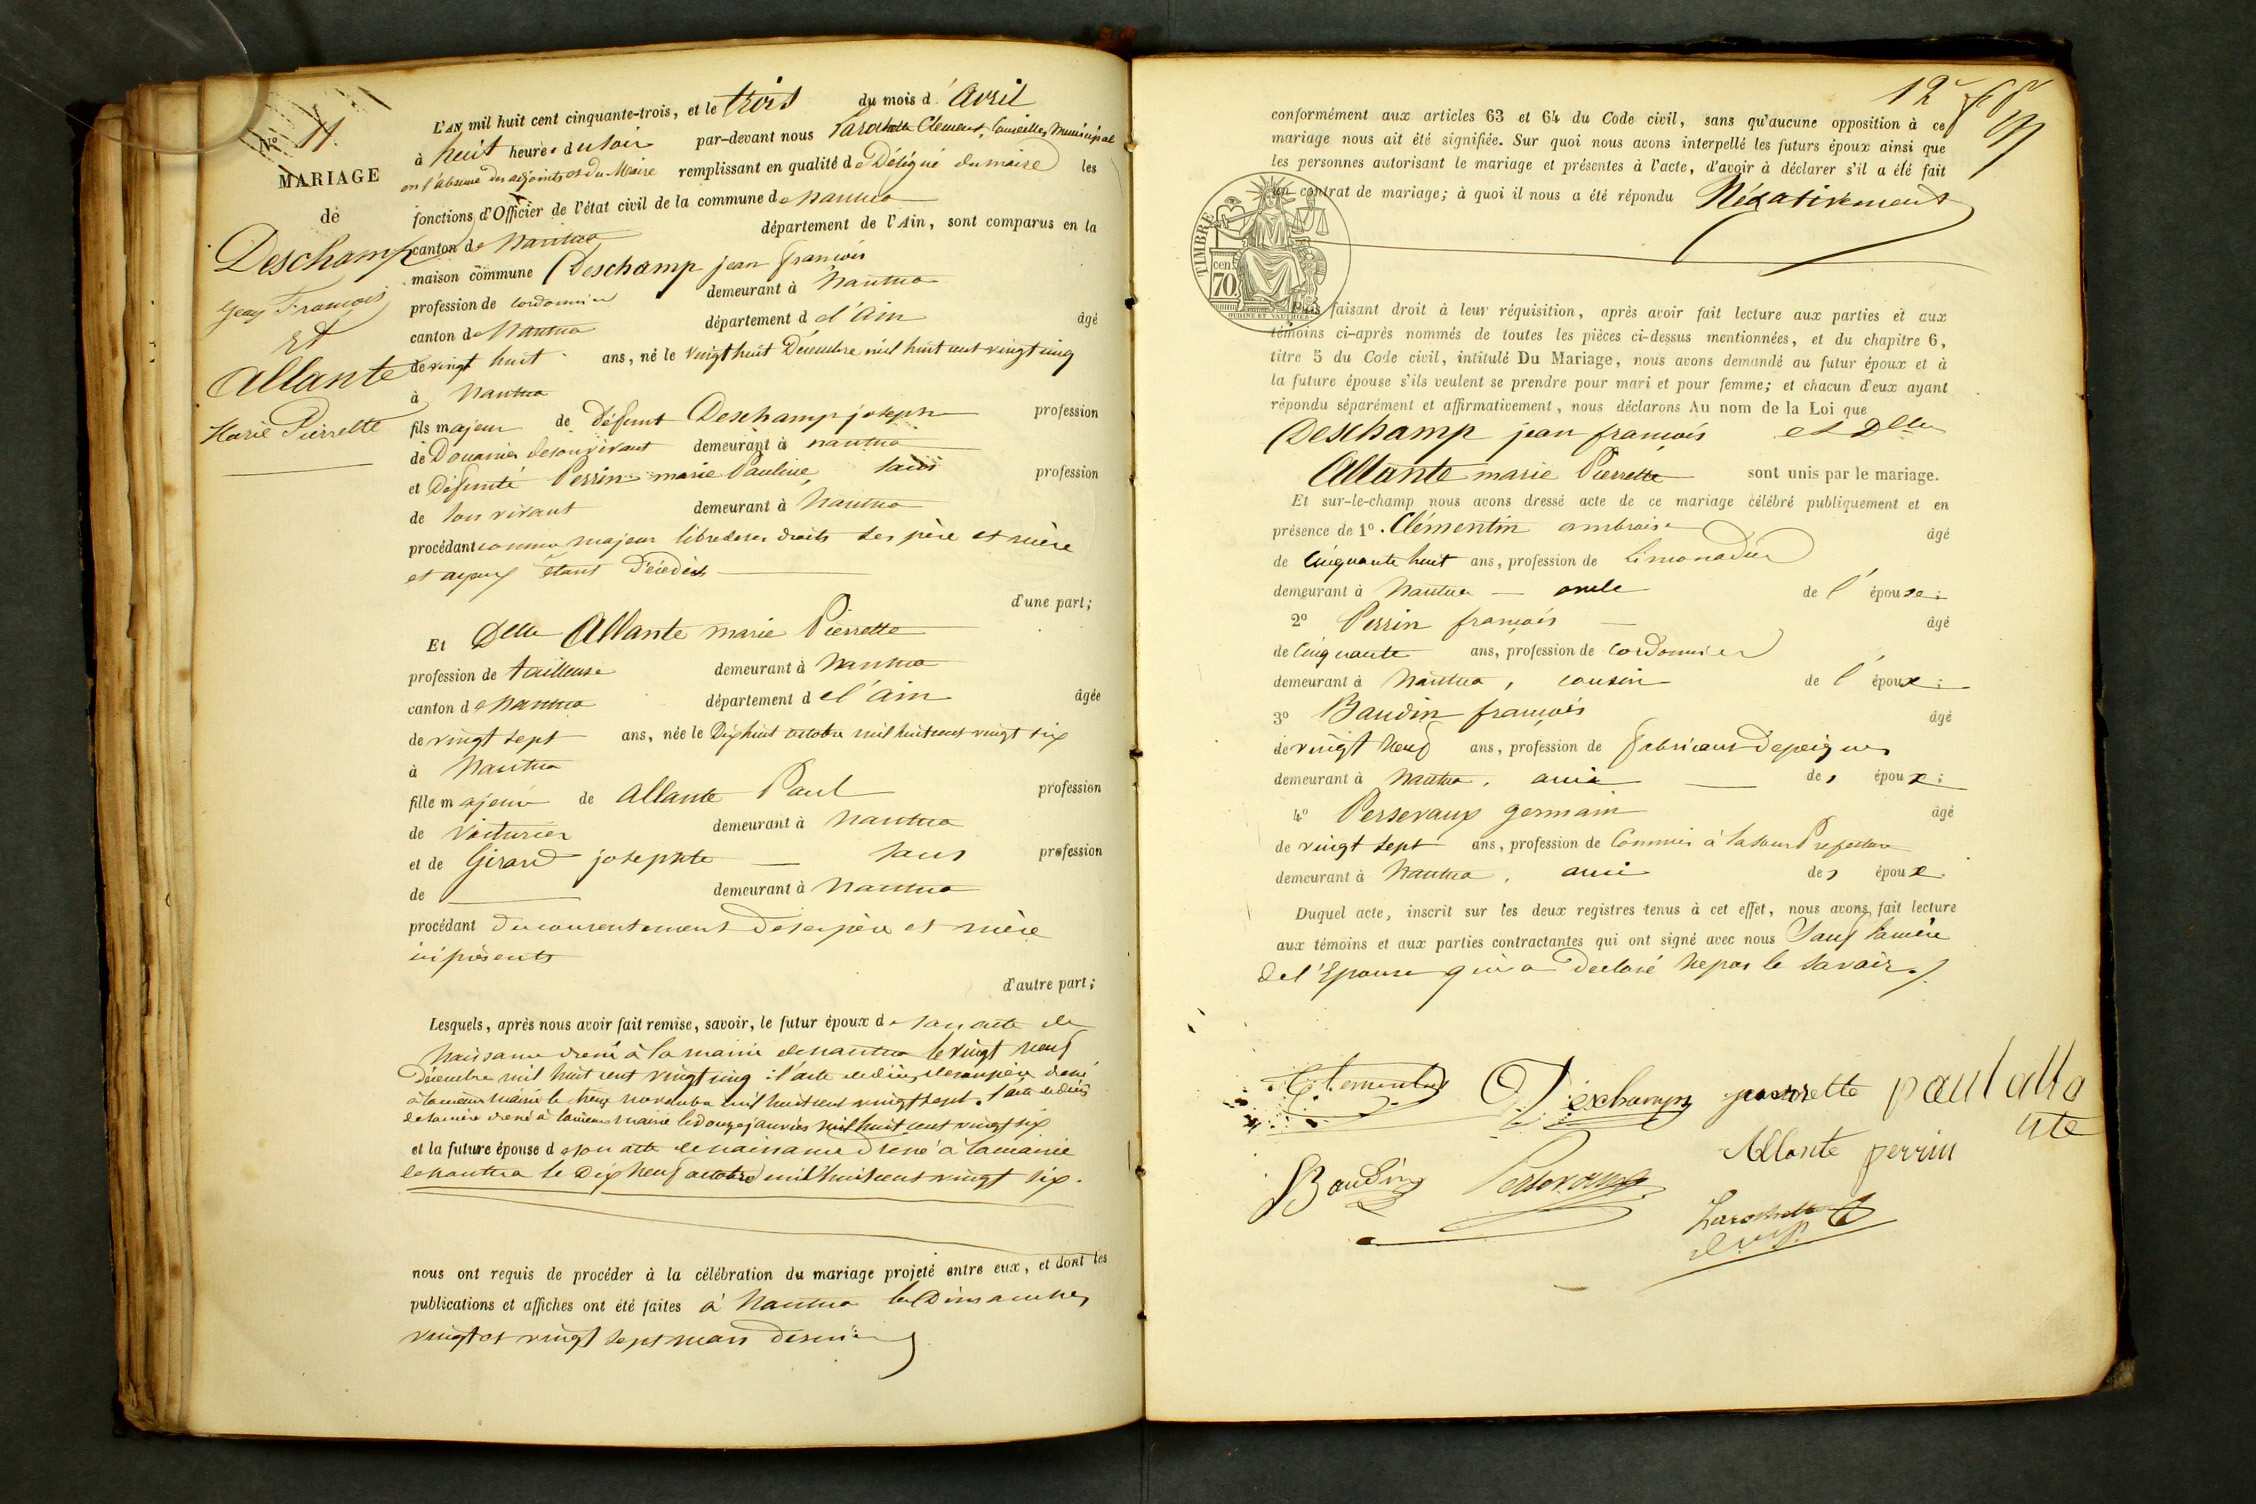 N° 11.
MARIAGE
de
Deschamp
Jean François
Et
Allante
Marie Pierrette
L'AN mil huit cent cinquante-trois, et le trois du mois d'Avril
à huit heures du soir par-devant nous Larochette Clément, Conseiller Municipal
en l'absence des adjoints et du Maire remplissant en qualité de Délégué du maire les
fonctions d'Officier de l'état civil de la commune de nantua
canton de Nantua département de l'Ain, sont comparus en la
maison commune Deschamp jean françois
profession de cordonnier demeurant à nantua
canton de Nantua département de l'ain âgé
de vingt huit ans, né le vingt huit Décembre mil huit cent vingt cinq
à Nantua
fils majeur de défunt Deschamp joseph profession
de Douanier de son vivant demeurant à nantua
et Défunte Perrin marie Pauline, sans profession
de son vivant demeurant à Nantua
procédant comme majeur libre de ses droits ses père et mère
et ayeux étant décédés
d'une part;
Et Delle Allante marie Pierrette
profession de tailleuse demeurant à Nantua
canton de nantua département de l'ain âgée
de vingt sept ans, née le Dix huit octobre mil huit cent vingt six
à Nantua
fille majeure de Allante Paul profession
de Voiturier demeurant à Nantua
et de Girard josephte sans profession
de demeurant à Nantua
procédant du consentement de ses père et mère
ici présents
d'autre part;
Lesquels, après nous avoir fait remise, savoir, le futur époux de son acte de
naissance dressé à la mairie de nantua le vingt neuf
Décembre mil huit cent vingt cinq: l'acte de décès de son père dressé
à la même mairie le treize novembre mil huit cent vingt sept. l'acte de décès
de sa mère dressé à la même mairie le douze janvier mil huit cent vingt six
et la future épouse de son acte de naissance dressé à la mairie
de nantua le Dix neuf octobre mil huit cent vingt six.
nous ont requis de procéder à la célébration du mariage projeté entre eux, et dont les
publications et affiches ont été faites à Nantua les Dimanches
vingt et vingt sept mars dernier
12
conformément aux articles 63 et 64 du Code civil, sans qu'aucune opposition à ce
mariage nous ait été signifiée. Sur quoi nous avons interpellé les futurs époux ainsi que
les personnes autorisant le mariage et présentes à l'acte, d'avoir à déclarer s'il a été fait
un contrat de mariage; à quoi il nous a été répondu Négativement
TIMBRE
70 cent
Puis faisant droit à leur réquisition, après avoir fait lecture aux parties et aux
témoins ci-après nommés de toutes les pièces ci-dessus mentionnées, et du chapitre 6,
titre 5 du Code civil, intitulé Du Mariage, nous avons demandé au futur époux et à
la future épouse s'ils veulent se prendre pour mari et pour femme; et chacun d'eux ayant
répondu séparément et affirmativement, nous déclarons Au nom de la Loi que
Deschamp jean françois et Delle
Allante marie Pierrette sont unis par le mariage.
Et sur-le-champ nous avons dressé acte de ce mariage célébré publiquement et en
présence de 1°. Clémentin ambroise âgé
de Cinquante huit ans, profession de Limonadier
demeurant à Nantua oncle de l'épouse;
2° Perrin françois âgé
de Cinquante ans, profession de cordonnier
demeurant à Nantua, cousin de l'époux;
3° Baudin françois âgé
de vingt neuf ans, profession de fabricant de peignes
demeurant à Nantua, ami des époux;
4° Persevaux germain âgé
de vingt sept ans, profession de Commis à la sous Prefecture
demeurant à Nantua, ami des époux.
Duquel acte, inscrit sur les deux registres tenus à cet effet, nous avons fait lecture
aux témoins et aux parties contractantes qui ont signé avec nous Sauf la mère
de l'Epouse qui a déclaré ne pas le savoir.
Clementin Déschamps pierrette paul alla
nte
Allante perrin
Baudin Persevaux
Larochette